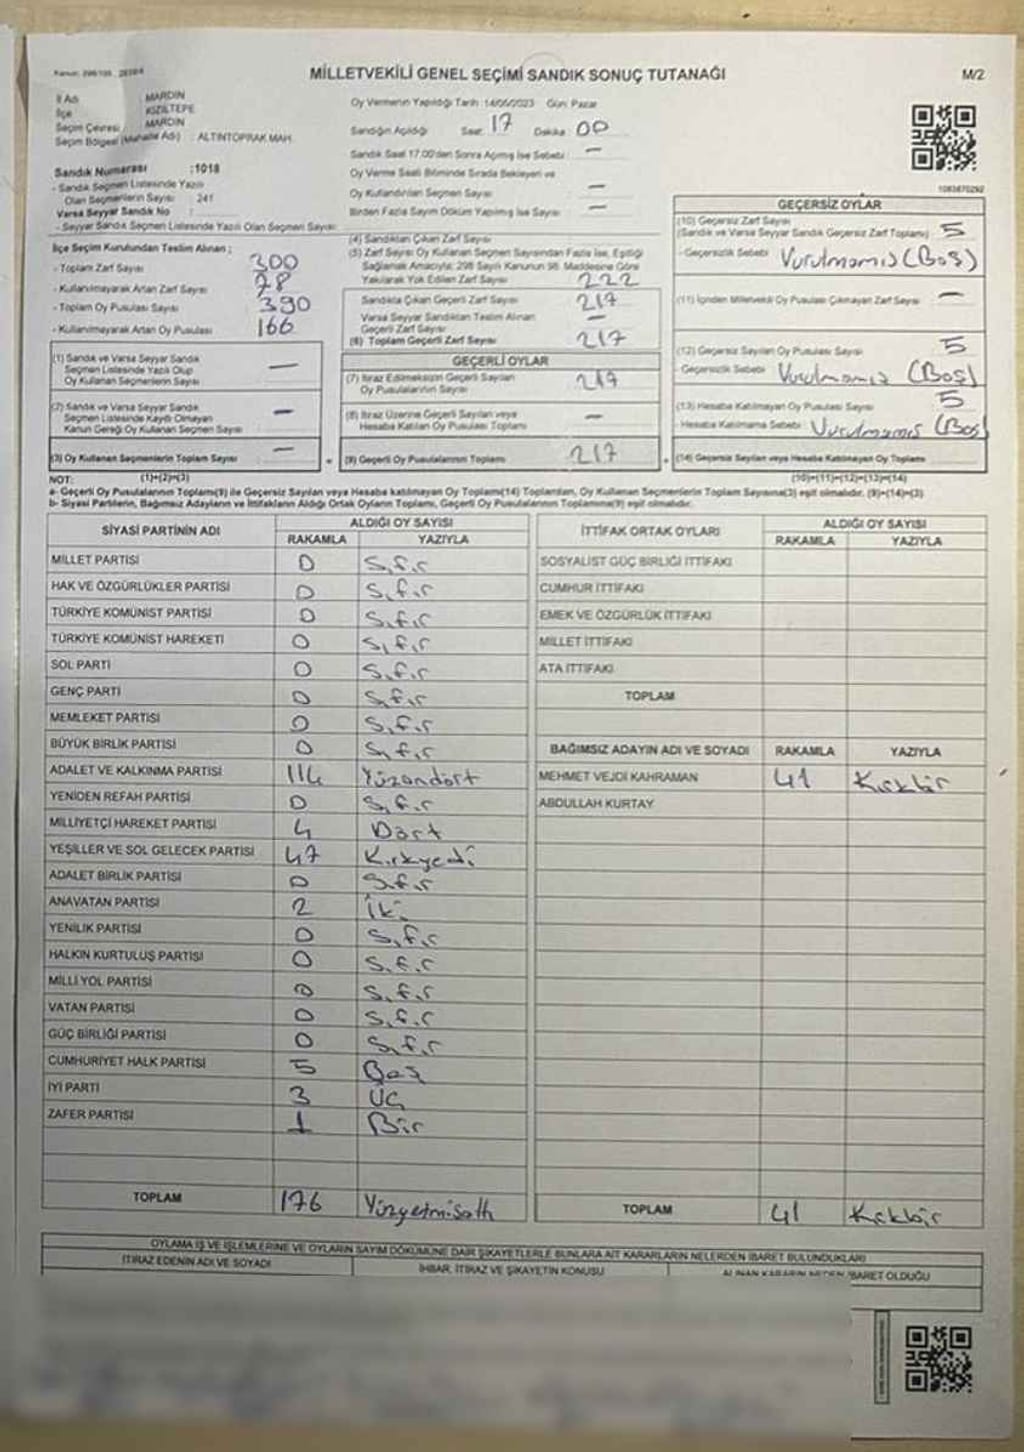 MİLLETVEKİLİ GENEL SEÇİMİ SANDIK SONUÇ TUTANAĞI
M/2
İl Adı : MARDİN
İlçe : KIZILTEPE
Seçim Çevresi : MARDİN
Seçim Bölgesi (Mahalle Adı) : ALTINTOPRAK MAH.
Sandık Numarası : 1018
- Sandık Seçmen Listesinde Yazılı
Olan Seçmenlerin Sayısı : 241
Varsa Seyyar Sandık No :
- Seyyar Sandık Seçmen Listesinde Yazılı Olan Seçmen Sayısı:
Oy Vermenin Yapıldığı Tarih :14/05/2023 Gün: Pazar
Sandığın Açıldığı Saat: 17 Dakika 00
Sandık Saat 17.00'den Sonra Açılmış İse Sebebi : —
Oy Verme Saati Bitiminde Sırada Bekleyen ve
Oy Kullandırılan Seçmen Sayısı —
Birden Fazla Sayım Döküm Yapılmış İse Sayısı —
1083870292
İlçe Seçim Kurulundan Teslim Alınan ;
- Toplam Zarf Sayısı 300
- Kullanılmayarak Artan Zarf Sayısı 78
- Toplam Oy Pusulası Sayısı 390
- Kullanılmayarak Artan Oy Pusulası 166
(1) Sandık ve Varsa Seyyar Sandık
Seçmen Listesinde Yazılı Olup
Oy Kullanan Seçmenlerin Sayısı —
(2) Sandık ve Varsa Seyyar Sandık
Seçmen Listesinde Kayıtlı Olmayan
Kanun Gereği Oy Kullanan Seçmen Sayısı —
(3) Oy Kullanan Seçmenlerin Toplam Sayısı —
(1)+(2)=(3)
(4) Sandıktan Çıkan Zarf Sayısı
(5) Zarf Sayısı Oy Kullanan Seçmen Sayısından Fazla İse, Eşitliği
Sağlamak Amacıyla; 298 Sayılı Kanunun 98. Maddesine Göre
Yakılarak Yok Edilen Zarf Sayısı 222
Sandıkta Çıkan Geçerli Zarf Sayısı 217
Varsa Seyyar Sandıktan Teslim Alınan
Geçerli Zarf Sayısı —
(6) Toplam Geçerli Zarf Sayısı 217
GEÇERLİ OYLAR
(7) İtiraz Edilmeksizin Geçerli Sayılan
Oy Pusulalarının Sayısı 217
(8) İtiraz Üzerine Geçerli Sayılan veya
Hesaba Katılan Oy Pusulası Toplamı —
(9) Geçerli Oy Pusulalarının Toplamı 217
GEÇERSİZ OYLAR
(10) Geçersiz Zarf Sayısı
(Sandık ve Varsa Seyyar Sandık Geçersiz Zarf Toplamı) 5
- Geçersizlik Sebebi Vurulmamış (Boş)
(11) İçinden Milletvekili Oy Pusulası Çıkmayan Zarf Sayısı —
(12) Geçersiz Sayılan Oy Pusulası Sayısı 5
- Geçersizlik Sebebi Vurulmamış (Boş)
(13) Hesaba Katılmayan Oy Pusulası Sayısı 5
- Hesaba Katılmama Sebebi Vurulmamış (Boş)
(14) Geçersiz Sayılan veya Hesaba Katılmayan Oy Toplamı
(10)+(11)+(12)+(13)=(14)
NOT:
a- Geçerli Oy Pusulalarının Toplamı(9) ile Geçersiz Sayılan veya Hesaba katılmayan Oy Toplamı(14) Toplamları, Oy Kullanan Seçmenlerin Toplam Sayısına(3) eşit olmalıdır. (9)+(14)=(3)
b- Siyasi Partilerin, Bağımsız Adayların ve İttifakların Aldığı Ortak Oyların Toplamı, Geçerli Oy Pusulalarının Toplamına(9) eşit olmalıdır.
SİYASİ PARTİNİN ADI ALDIĞI OY SAYISI
RAKAMLA YAZIYLA
MİLLET PARTİSİ 0 Sıfır
HAK VE ÖZGÜRLÜKLER PARTİSİ 0 Sıfır
TÜRKİYE KOMÜNİST PARTİSİ 0 Sıfır
TÜRKİYE KOMÜNİST HAREKETİ 0 Sıfır
SOL PARTİ 0 Sıfır
GENÇ PARTİ 0 Sıfır
MEMLEKET PARTİSİ 0 Sıfır
BÜYÜK BİRLİK PARTİSİ 0 Sıfır
ADALET VE KALKINMA PARTİSİ 114 Yüzondört
YENİDEN REFAH PARTİSİ 0 Sıfır
MİLLİYETÇİ HAREKET PARTİSİ 4 Dört
YEŞİLLER VE SOL GELECEK PARTİSİ 47 Kırkyedi
ADALET BİRLİK PARTİSİ 0 Sıfır
ANAVATAN PARTİSİ 2 İki
YENİLİK PARTİSİ 0 Sıfır
HALKIN KURTULUŞ PARTİSİ 0 Sıfır
MİLLİ YOL PARTİSİ 0 Sıfır
VATAN PARTİSİ 0 Sıfır
GÜÇ BİRLİĞİ PARTİSİ 0 Sıfır
CUMHURİYET HALK PARTİSİ 5 Beş
İYİ PARTİ 3 Üç
ZAFER PARTİSİ 1 Bir
TOPLAM 176 Yüzyetmişaltı
İTTİFAK ORTAK OYLARI ALDIĞI OY SAYISI
RAKAMLA YAZIYLA
SOSYALİST GÜÇ BİRLİĞİ İTTİFAKI
CUMHUR İTTİFAKI
EMEK VE ÖZGÜRLÜK İTTİFAKI
MİLLET İTTİFAKI
ATA İTTİFAKI
TOPLAM
BAĞIMSIZ ADAYIN ADI VE SOYADI RAKAMLA YAZIYLA
MEHMET VEJDİ KAHRAMAN 41 Kırkbir
ABDULLAH KURTAY
TOPLAM 41 Kırkbir
OYLAMA İŞ VE İŞLEMLERİNE VE OYLARIN SAYIM DÖKÜMÜNE DAİR ŞİKAYETLERLE BUNLARA AİT KARARLARIN NELERDEN İBARET BULUNDUKLARI
İTİRAZ EDENİN ADI VE SOYADI İHBAR, İTİRAZ VE ŞİKAYETİN KONUSU ALINAN KARARIN NEDEN İBARET OLDUĞU